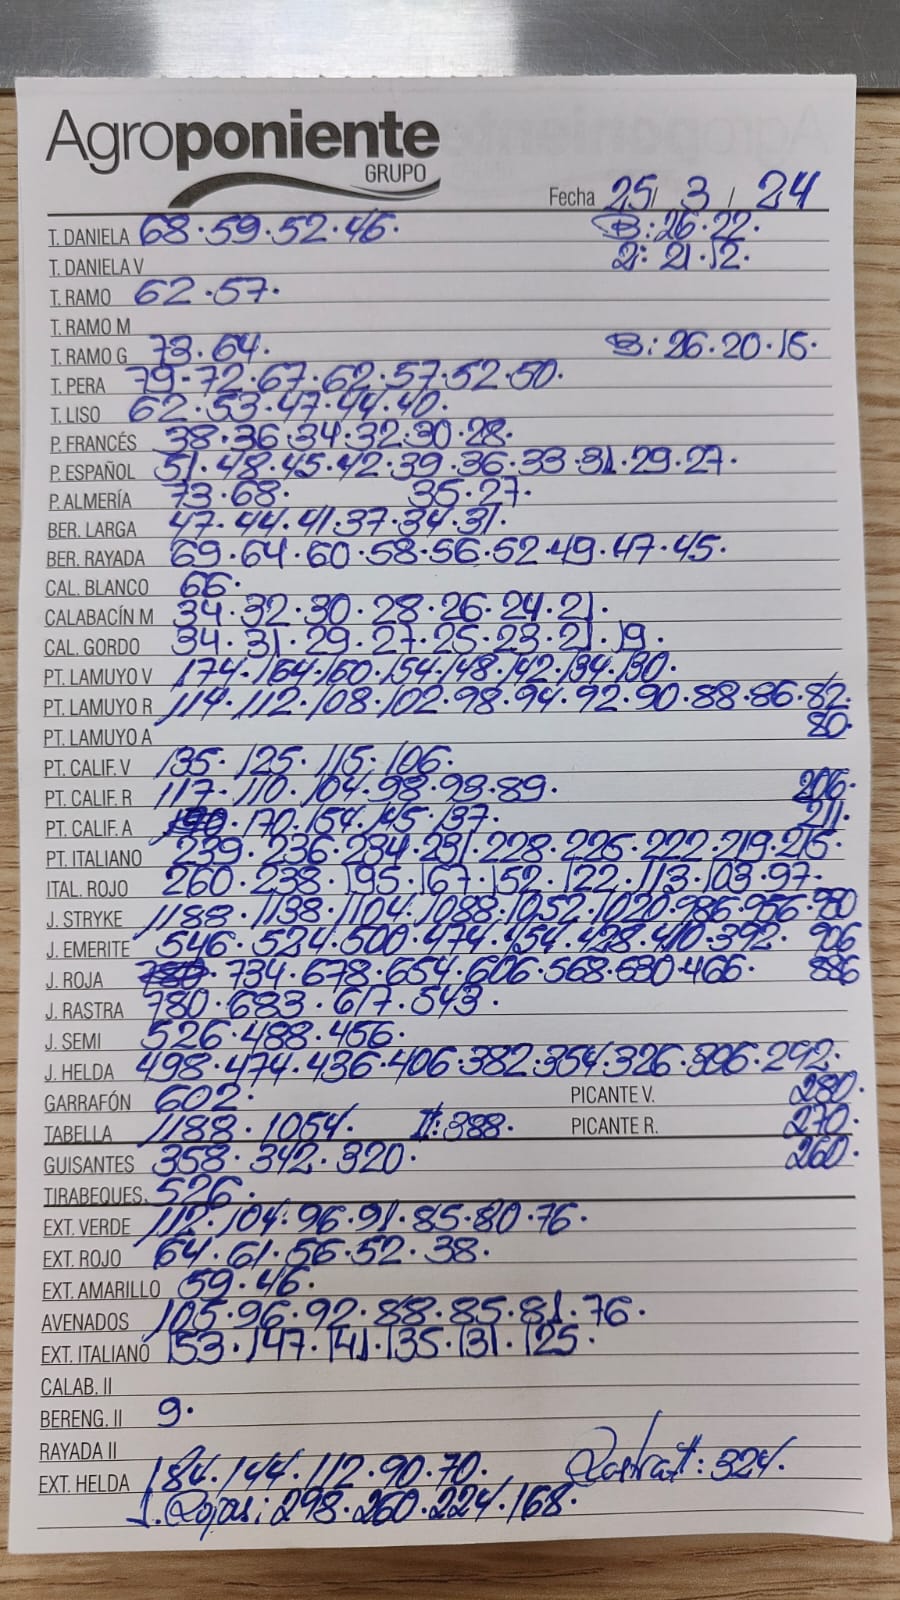 Agroponiente
GRUPO
Fecha 25/ 3 / 24
T. DANIELA 68·59·52·46· B: 26·22·
T. DANIELA V 2: 21·12·
T. RAMO 62·57·
T. RAMO M
T. RAMO G 73·64· B: 26·20·15·
T. PERA 79·72·67·62·57·52·50·
T. LISO 62·53·47·44·40·
P. FRANCÉS 38·36·34·32·30·28·
P. ESPAÑOL 51·48·45·42·39·36·33·31·29·27·
P. ALMERÍA 73·68· 35·27·
BER. LARGA 47·44·41·37·34·31·
BER. RAYADA 69·64·60·58·56·52·49·47·45·
CAL. BLANCO 66·
CALABACÍN M 34·32·30·28·26·24·21·
CAL. GORDO 34·31·29·27·25·23·21·19·
PT. LAMUYO V 174·164·160·154·148·142·134·130·
PT. LAMUYO R 114·112·108·102·98·94·92·90·88·86·82·
PT. LAMUYO A 80·
PT. CALIF. V 135·125·115·106·
PT. CALIF. R 117·110·104·98·93·89· 206·
PT. CALIF. A 170·154·145·137· 211·
PT. ITALIANO 239·236·234·231·228·225·222·219·215·
ITAL. ROJO 260·238·195·167·152·122·113·103·97·
J. STRYKE 1188·1138·1104·1088·1052·1020·986·956·930
J. EMERITE 546·524·500·474·454·428·410·392· 906
J. ROJA 734·678·654·606·568·530·466· 886
J. RASTRA 780·683·617·543·
J. SEMI 526·488·456·
J. HELDA 498·474·436·406·382·354·326·306·292·
GARRAFÓN 602· PICANTE V. 280·
TABELLA 1188·1054· II: 388· PICANTE R. 270·
GUISANTES 358·342·320· 260·
TIRABEQUES. 526·
EXT. VERDE 112·104·96·91·85·80·76·
EXT. ROJO 64·61·56·52·38·
EXT. AMARILLO 59·46·
AVENADOS 105·96·92·88·85·81·76·
EXT. ITALIANO 153·147·141·135·131·125·
CALAB. II
BERENG. II 9·
RAYADA II
EXT. HELDA 184·144·112·90·70· Rastra II: 324·
J. Rojas: 298·260·224·168·